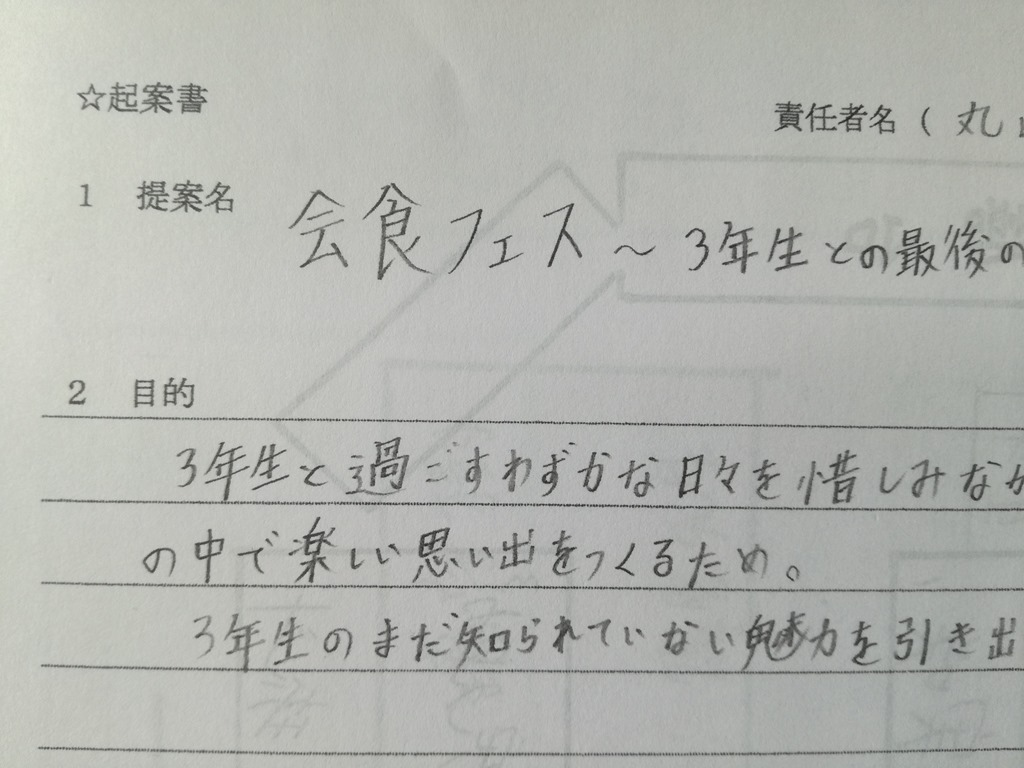 ☆起案書
責任者名（ 丸
1 提案名 会食フェス ～ 3年生との最後の
2 目的
3年生と過ごすわずかな日々を惜しみなが
の中で楽しい思い出をつくるため。
3年生のまだ知られていない魅力を引き出